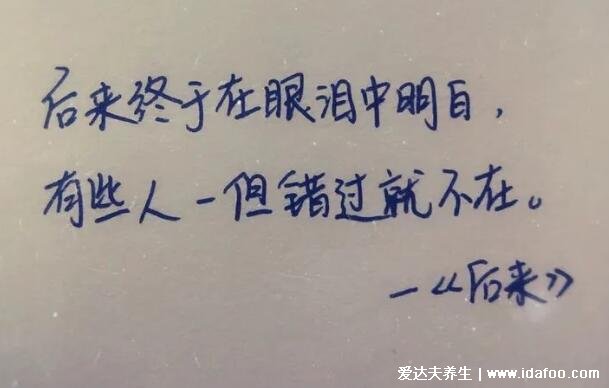 后来终于在眼泪中明白，
有些人一但错过就不在。
—《后来》
爱达夫养生 | www.idafoo.com